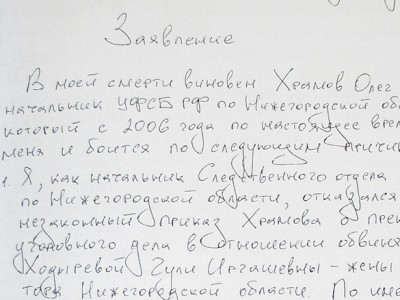 Заявление
В моей смерти виновен Храмов Олег
начальник УФСБ РФ по Нижегородской об
который с 2006 года по настоящее врем
меня и боится по следующим причи
1. Я, как начальник Следственного отдела
по Нижегородской области, отказался
незаконный приказ Храмова о прек
уголовного дела в отношении обвин
Ходыревой Гули Иргашевны - жены
тора Нижегородской области. По име